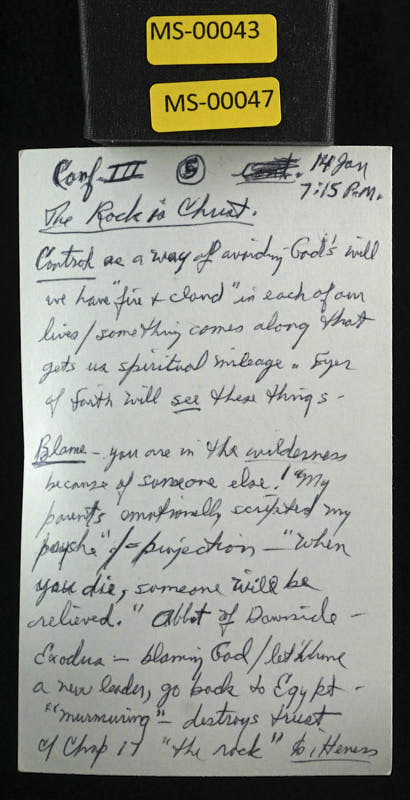 MS-00043
MS-00047
Conf III ⑤ Cont. 14 Jan
7:15 P.M.
The Rock is Christ.
Control as a way of avoiding God's will
we have "fire + cloud" in each of our
lives / something comes along that
gets us spiritual mileage. Eyes
of faith will see these things -
Blame - you are in the wilderness
because of someone else! "My
parents emotionally scripted my
psyche" = projection - "When
you die, someone will be
relieved." Abbot of Downside -
Exodus - blaming God / let's have
a new leader, go back to Egypt -
"murmuring" - destroys trust
cf Chap 17 "the rock"